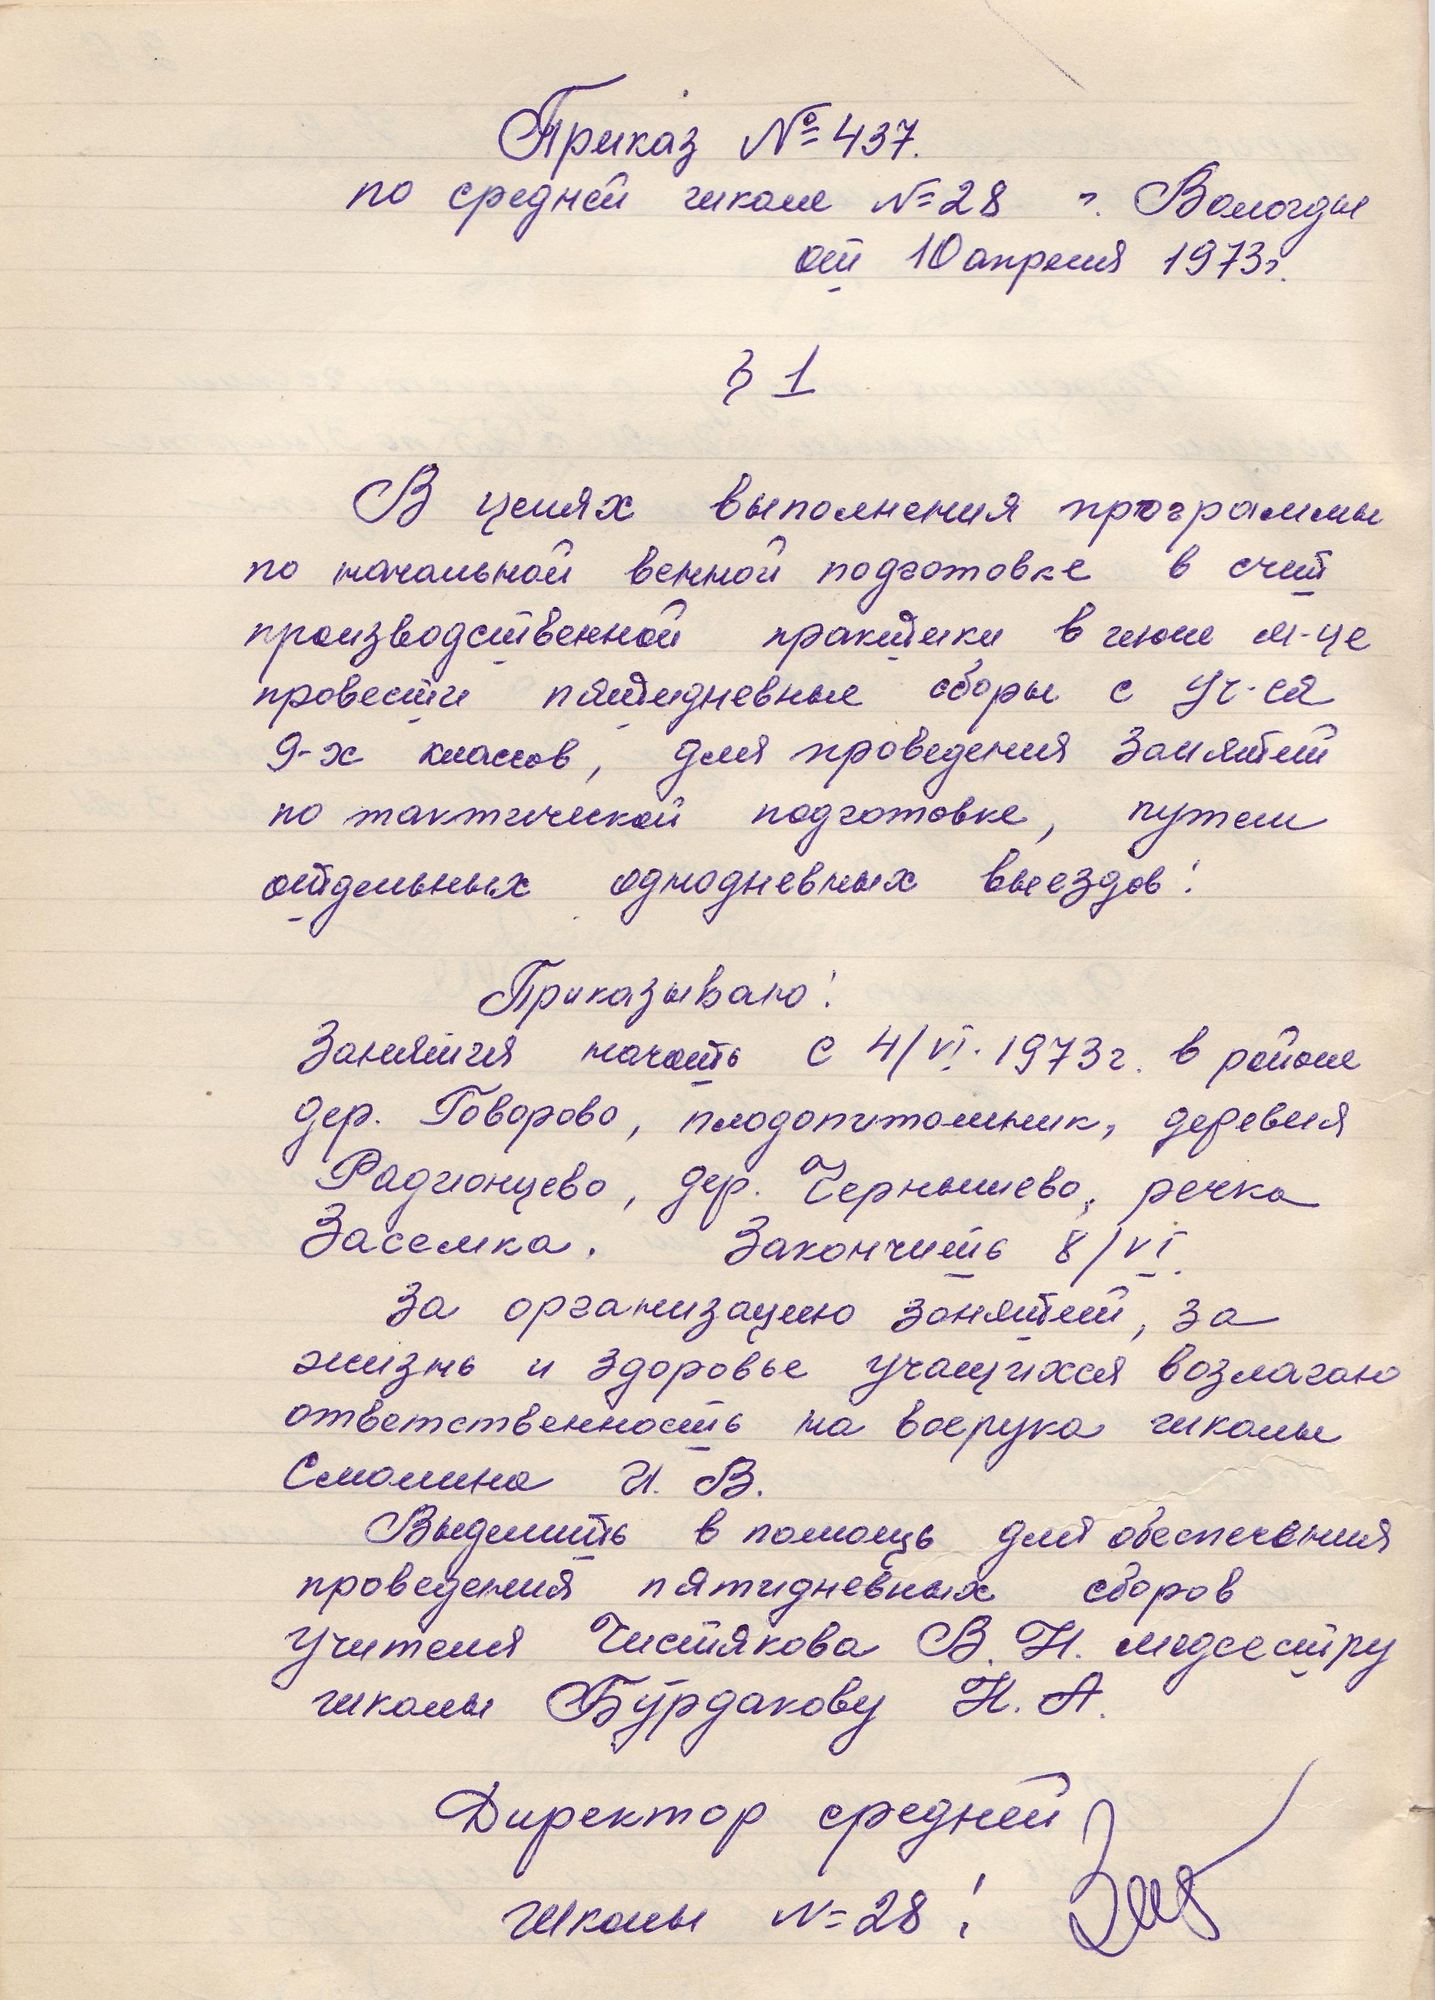 Приказ № 437.
по средней школе № 28 г. Вологды
от 10 апреля 1973г.
§ 1
В целях выполнения программы
по начальной венной подготовке в счет
производственной практики в июне м-це
провести пятидневные сборы с уч-ся
9-х классов, для проведения занятий
по тактической подготовке, путем
отдельных однодневных выездов:
Приказываю:
Занятия начать с 4/VI. 1973г. в районе
дер. Говорово, плодопитомник, деревня
Радионцево, дер. Чернышево, речка
Заселка. Закончить 8/VI.
За организацию занятий, за
жизнь и здоровье учащихся возлагаю
ответственность на воерука школы
Смолина И. В.
Выделить в помощь для обеспечения
проведения пятидневных сборов
учителя Чистякова В. Н. медсестру
школы Бурдакову Н. А.
Директор средней
школы № 28: